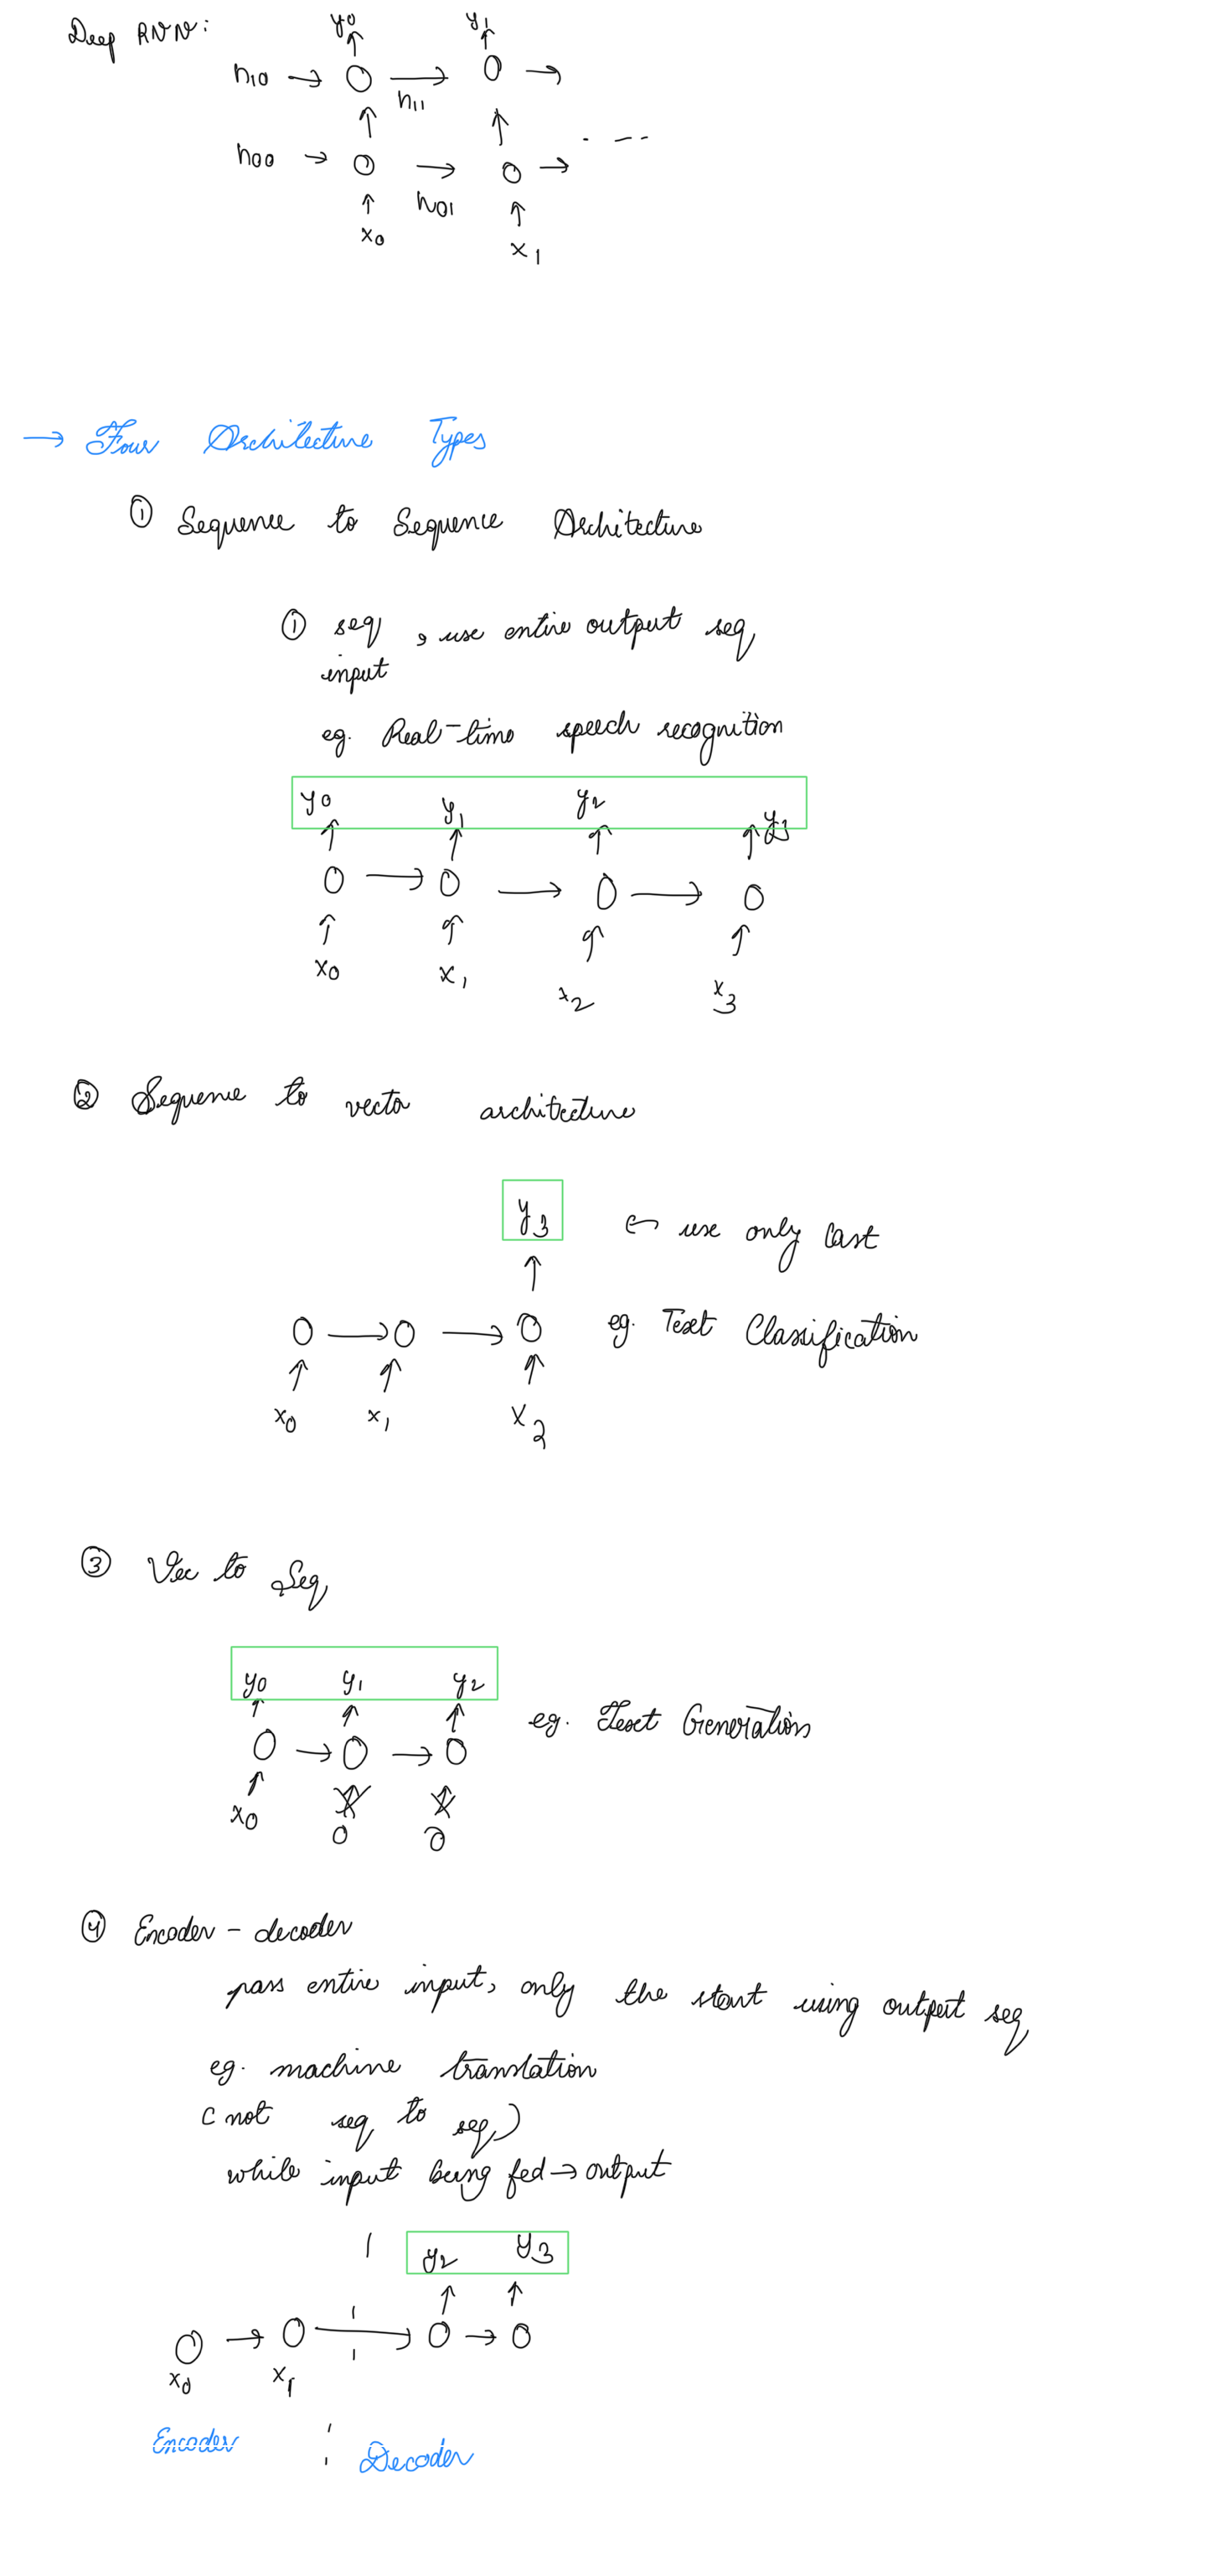 Deep RNN:
y0 y1
h10 → O → O →
h11
h00 → O → O → . ---
h01
x0
x1
→ Four Architecture Types
① Sequence to Sequence Architecture
① seq , use entire output seq
input
eg. Real-time speech recognition
y0 y1 y2 y3
O → O → O → O
x0 x1 x2 x3
② Sequence to vector architecture
y3 ← use only last
O → O → O eg. Text Classification
x0 x1 x2
③ Vec to Seq
y0 y1 y2
eg. Text Generation
O → O → O
x0
0 0
④ Encoder - decoder
pass entire input, only the start using output seq
eg. machine translation
(not seq to seq)
while input being fed → output
y2 y3
O → O → O → O
x0 x1
Encoder Decoder